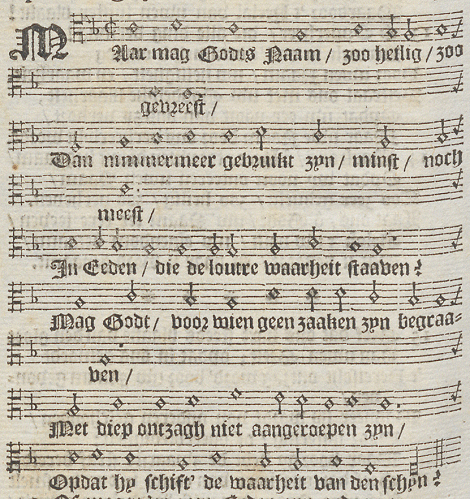 MAar mag Godts Naam / zoo heilig / zoo
gevreest /
Dan nimmermeer gebruikt zyn / minst / noch
meest /
In Eeden / die de loutre waarheit staaven?
Mag Godt / voor wien geen zaaken zyn begraa-
ven /
Met diep ontzagh niet aangeroepen zyn /
Opdat hy schift' de waarheit van den schyn?